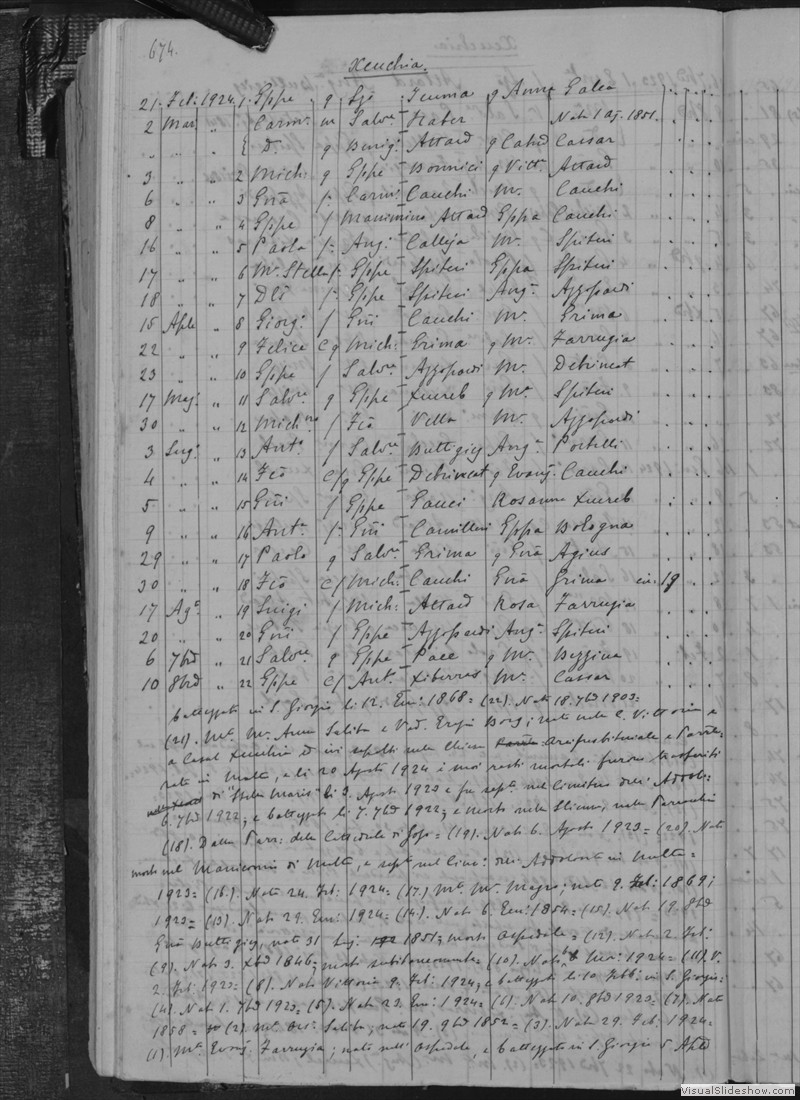 674.
Xeuchia.
21. Feb: 1924. 1. Gppe q Lji Teuma q Anna Galea
2 Mar. " Carm. m Salv. Rater Nata 1 Ag. 1851.
" " " { D. q Benig: Attard q Catnd Cassar
3 " " 2 Mich: q Gppe Bonnici q Vitt. Attard
6 " " 3 Gnã f. Carm. Cauchi Mª Cauchi
8 " " 4 Gppe f Massimino Attard Gppa Cauchi
16 " " 5 Paola f. Ang: Calleja Mª Spiteri
17 " " 6 Mª Stella f. Gppe Spiteri Gppa Spiteri
18 " " 7 f. Gppe Spiteri Ang. Azzopardi
15 Aple " 8 Giorg. f Gni Cauchi Mª Grima
22 " " 9 Felice C q Mich. Grima q Mª Farrugia
23 " " 10 Gppe f Salv. Azzopardi Mª Debrincat
17 Mag. " 11 Salv. q Gppe Xuereb q Mª Spiteri
30 " " 12 f Fcõ Vella Mª Azzopardi
3 Lug. " 13 Ant. f Salv. Buttigieg Ang. Portelli
4 " " 14 Fcõ C/q Gppe Debrincat q Evang. Cauchi
5 " " 15 Gni f Gppe Gauci Rosanna Xuereb
9 " " 16 Ant. f. Gni Camilleri Gppa Bologna
29 " " 17 Paolo q Salv. Grima q Gnã Agius
30 " " 18 Fcõ C/ Mich: Cauchi Gnã Grima in: 19
17 Ag. " 19 Luigi f Mich: Attard Rosa Farrugia
20 " " 20 Gni f Gppe Azzopardi Ang. Spiteri
6 7bre " 21 Salv. q Gppe Pace q Mª Bezzina
10 8bre " 22 Gppe C/ Ant. Xiberras Mª Cassar
battezzato in S. Giorgio li 12. Gen: 1868= (22). Nato 18. 7bre 1903=
(21). Mª Anna Saliba e Ved. Borg; nata nella C. Vittoria e
a Casal Xeuchia ed ivi nella Chiesa Arcipresbiterale e
in Malta, e li 20 Agosto 1924 i suoi resti mortali furono trasferiti
di "Stella Maris" li 3. Agosto 1923 e fu sepº nel Cimitero dell' Addol-
6. 7bre 1922, e battezzato li 7. 7bre 1922; e morto nella Sliema, nella Parrocchia
(18). Dalla Parr: della Cattedrale di Gozo= (19). Nato 6. Agosto 1923= (20). Nato
morto nel Manicomio di Malta, e sepº nel Cim: dell' Addolorata in Malta=
1923= (16.) Nata 24. Feb: 1924= (17.) Mº Mª Magro; nato 9. Feb: 1869;
1923= (13). Nato 29. Gen: 1924= (14.) Nato 6. Gen: 1854= (15). Nato 19. 8bre
Gnã Buttigieg, nato 31 Lug. 1851; morto Ospedale= (12). Nato 2. Feb:
(9). Nato 3. Xbre 1846; morto subitaneamente= (10). Nato Mar: 1924= (11). V.
2. Feb. 1923= (8). Nato Vittoria 9. Feb: 1924, e battezzato li 10 Febb: in S. Giorgio=
(4). Nato 1. 7bre 1923= (5). Nata 23. Gen: 1924= (6). Nata 10. 8bre 1923= (7). Nato
1858= (2). Mº Saliba; nato 19. 9bre 1852= (3). Nata 29. Feb. 1924=
(1) Mº Evang. Farrugia; nato nell' Ospedale, e battezzato in S. Giorgio 5 Aple
VisualSlideshow.com